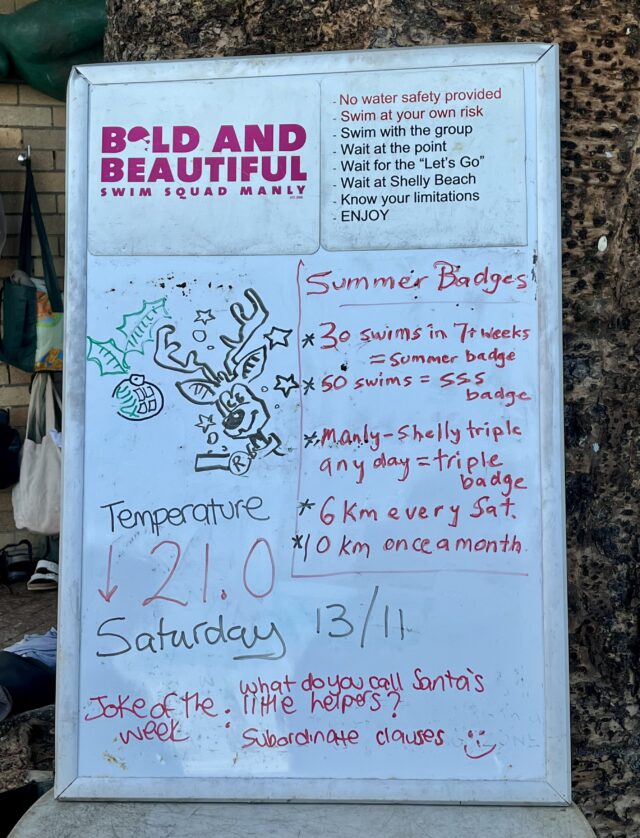 BOLD AND
BEAUTIFUL
SWIM SQUAD MANLY
- No water safety provided
- Swim at your own risk
- Swim with the group
- Wait at the point
- Wait for the "Let's Go"
- Wait at Shelly Beach
- Know your limitations
- ENJOY
Summer Badges
* 30 swims in 7+ weeks
= summer badge
* 50 swims = SSS
badge
* Manly-Shelly triple
any day = triple
badge
* 6 km every Sat.
* 10 km once a month
R
Temperature
↓ 21.0
Saturday 13/11
Joke of the week :
What do you call Santa's
little helpers?
Subordinate clauses